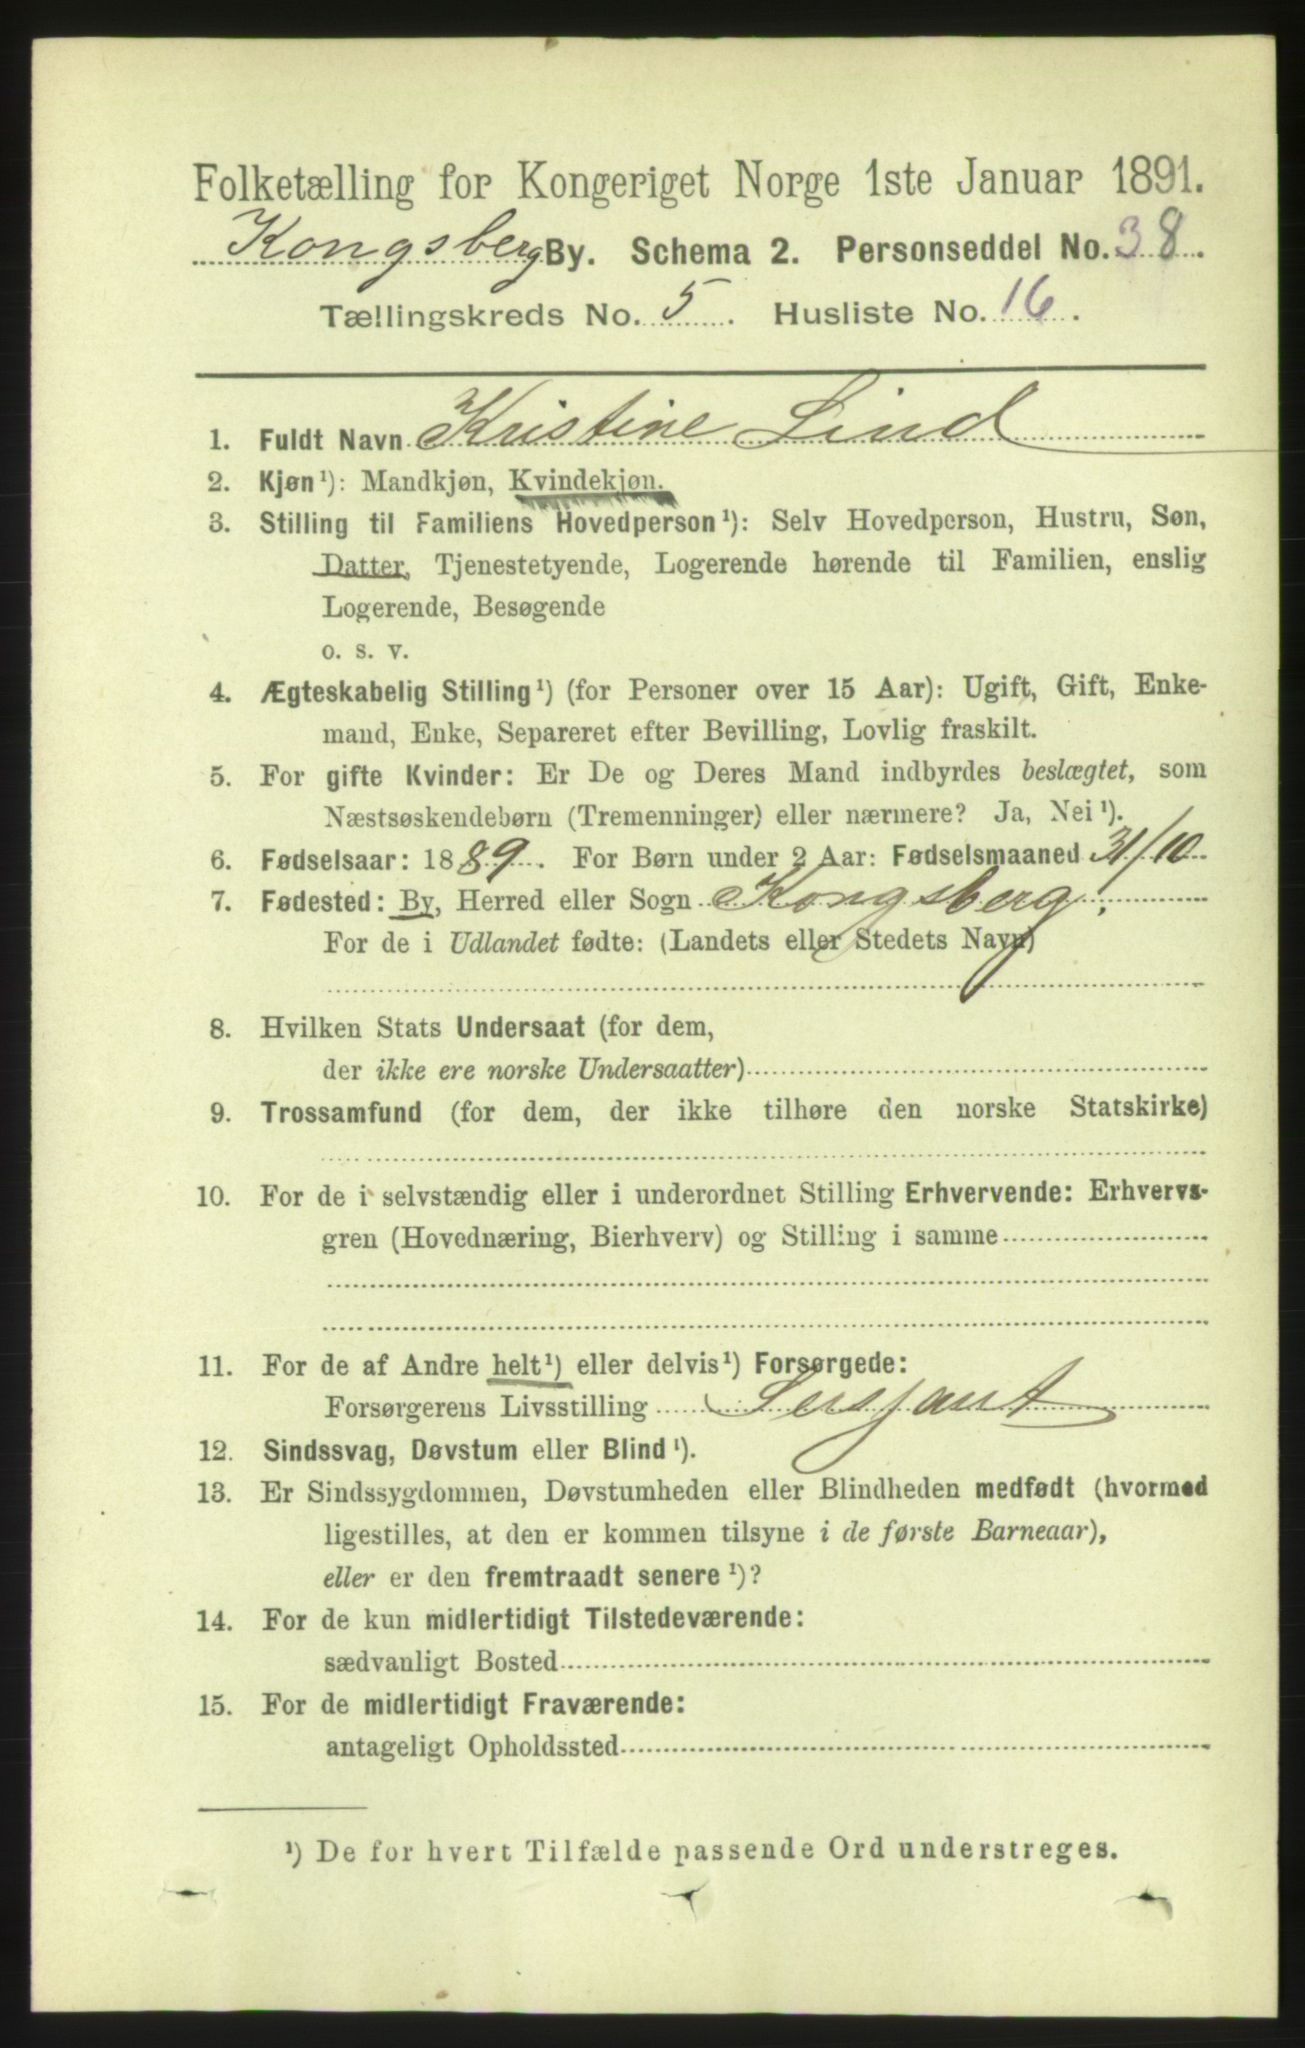 Folketælling for Kongeriget Norge 1ste Januar 1891.
Kongsberg By. Schema 2. Personseddel No. 38.
Tællingskreds No. 5. Husliste No. 16.
1. Fuldt Navn Kristine Lind
2. Kjøn¹): Mandkjøn, Kvindekjøn.
3. Stilling til Familiens Hovedperson¹): Selv Hovedperson, Hustru, Søn,
Datter, Tjenestetyende, Logerende hørende til Familien, enslig
Logerende, Besøgende
o. s. v.
4. Ægteskabelig Stilling¹) (for Personer over 15 Aar): Ugift, Gift, Enke-
mand, Enke, Separeret efter Bevilling, Lovlig fraskilt.
5. For gifte Kvinder: Er De og Deres Mand indbyrdes beslægtet, som
Næstsøskendebørn (Tremenninger) eller nærmere? Ja, Nei¹).
6. Fødselsaar: 1889. For Børn under 2 Aar: Fødselsmaaned 31/10
7. Fødested: By, Herred eller Sogn Kongsberg.
For de i Udlandet fødte: (Landets eller Stedets Navn)
8. Hvilken Stats Undersaat (for dem,
der ikke ere norske Undersaatter)
9. Trossamfund (for dem, der ikke tilhøre den norske Statskirke)
10. For de i selvstændig eller i underordnet Stilling Erhvervende: Erhvervs-
gren (Hovednæring, Bierhverv) og Stilling i samme
11. For de af Andre helt¹) eller delvis¹) Forsørgede:
Forsørgerens Livsstilling Sersjant
12. Sindssvag, Døvstum eller Blind¹).
13. Er Sindssygdommen, Døvstumheden eller Blindheden medfødt (hvormed
ligestilles, at den er kommen tilsyne i de første Barneaar),
eller er den fremtraadt senere¹)?
14. For de kun midlertidigt Tilstedeværende:
sædvanligt Bosted
15. For de midlertidigt Fraværende:
antageligt Opholdssted
¹) De for hvert Tilfælde passende Ord understreges.